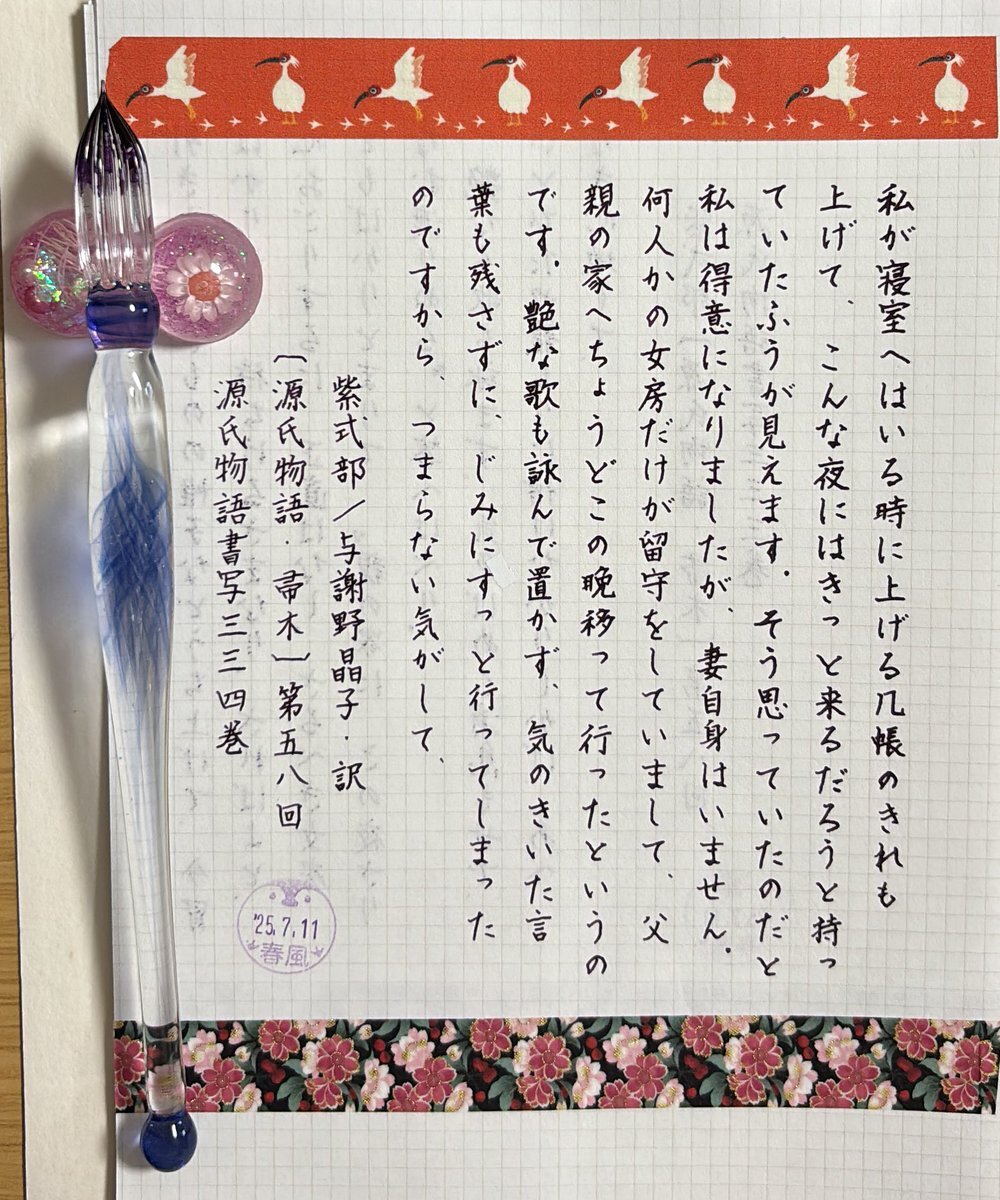 私が寝室へはいる時に上げる几帳のきれも
上げて、こんな夜にはきっと来るだろうと持っ
ていたふうが見えます。そう思っていたのだと
私は得意になりましたが、妻自身はいません。
何人かの女房だけが留守をしていまして、父
親の家へちょうどこの晩移って行ったというの
です。艶な歌も詠んで置かず、気のきいた言
葉も残さずに、じみにすっと行ってしまった
のですから、つまらない気がして、
紫式部／与謝野晶子・訳
〔源氏物語・帚木〕第五八回
源氏物語書写三三四巻
'25.7.11
春風